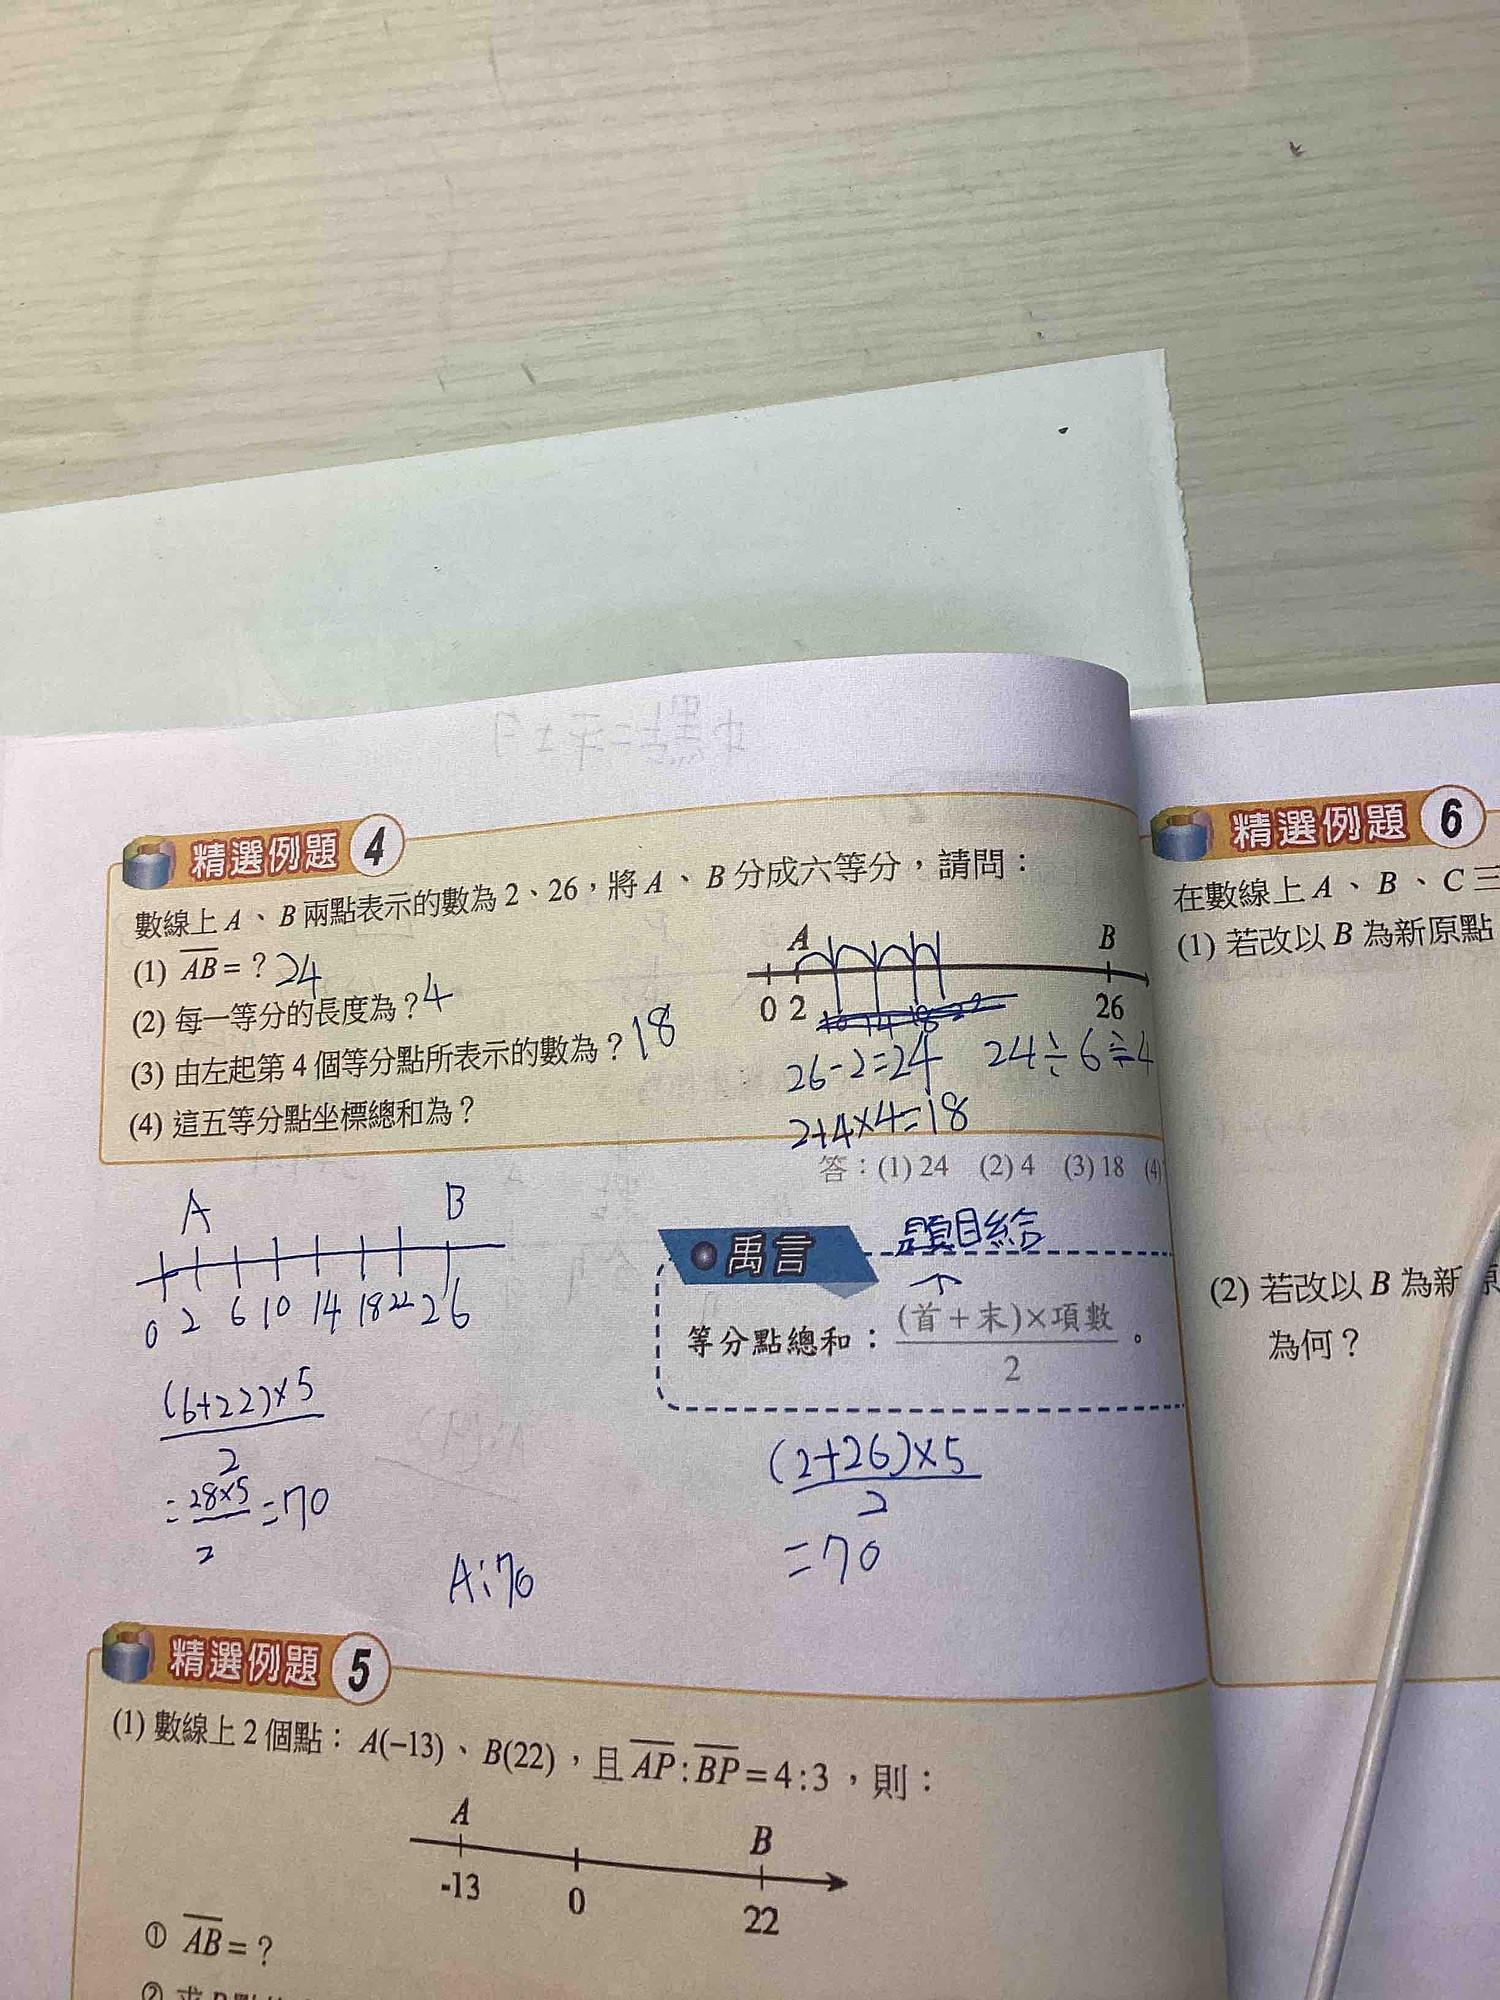 精選例題 4
數線上 A、B 兩點表示的數為 2、26，將 A、B 分成六等分，請問：
(1) AB = ? 24
(2) 每一等分的長度為？4
(3) 由左起第 4 個等分點所表示的數為？18
(4) 這五等分點坐標總和為？
A B
0 2 26
26-2=24 24÷6=4
2+4×4=18
答：(1) 24 (2) 4 (3) 18 (4)
A B
0 2 6 10 14 18 22 26
(6+22)×5
2
= 28×5 = 70
2
A:70
禹言
題目給
↑
等分點總和：(首+末)×項數
2 。
(2+26)×5
2
=70
精選例題 5
(1) 數線上 2 個點：A(−13)、B(22)，且 AP : BP = 4 : 3，則：
A B
-13 0 22
① AB = ?
②
精選例題 6
在數線上 A、B、C 三
(1) 若改以 B 為新原點
(2) 若改以 B 為新原
為何？